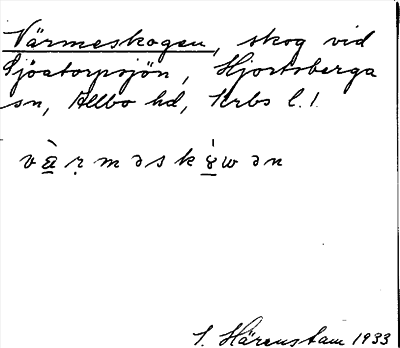 Värmeskogen, skog vid
Sjöatorpsjön, Hjortsberga
sn, Allbo hd, Krbs l.
S. Härenstam 1933